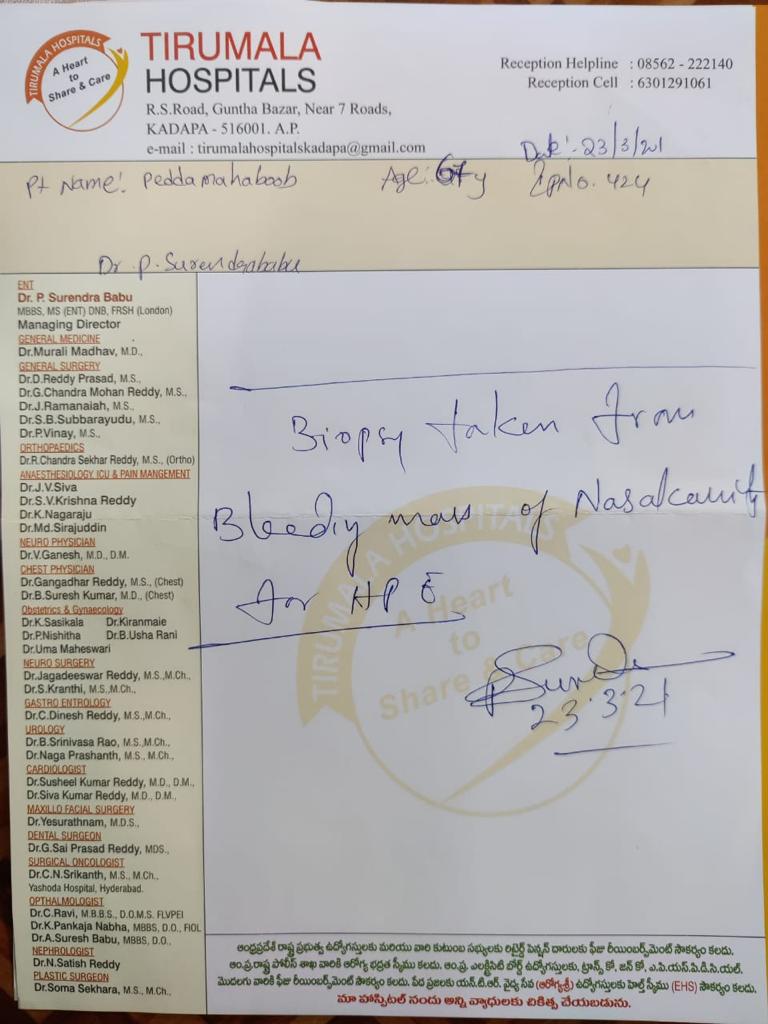 TIRUMALA HOSPITALS
A Heart
to
Share & Care
TIRUMALA
HOSPITALS
R.S.Road, Guntha Bazar, Near 7 Roads,
KADAPA - 516001. A.P.
e-mail : tirumalahospitalskadapa@gmail.com
Reception Helpline : 08562 - 222140
Reception Cell : 6301291061
Date:- 23/3/201
Pt Name: Peddamahaboob Age: 67y IpNo. 424
Dr P. Surendrababu
ENT
Dr. P. Surendra Babu
MBBS, MS (ENT) DNB, FRSH (London)
Managing Director
GENERAL MEDICINE
Dr.Murali Madhav, M.D.,
GENERAL SURGERY
Dr.D.Reddy Prasad, M.S.,
Dr.G.Chandra Mohan Reddy, M.S.,
Dr.J.Ramanaiah, M.S.,
Dr.S.B.Subbarayudu, M.S.,
Dr.P.Vinay, M.S.,
ORTHOPAEDICS
Dr.R.Chandra Sekhar Reddy, M.S., (Ortho)
ANAESTHESIOLOGY, ICU & PAIN MANGEMENT
Dr.J.V.Siva
Dr.S.V.Krishna Reddy
Dr.K.Nagaraju
Dr.Md.Sirajuddin
NEURO PHYSICIAN
Dr.V.Ganesh, M.D., D.M.
CHEST PHYSICIAN
Dr.Gangadhar Reddy, M.S., (Chest)
Dr.B.Suresh Kumar, M.D., (Chest)
Obstetrics & Gynaecology
Dr.K.Sasikala Dr.Kiranmaie
Dr.P.Nishitha Dr.B.Usha Rani
Dr.Uma Maheswari
NEURO SURGERY
Dr.Jagadeeswar Reddy, M.S.,M.Ch.,
Dr.S.Kranthi, M.S.,M.Ch.,
GASTRO ENTROLOGY
Dr.C.Dinesh Reddy, M.S.,M.Ch.,
UROLOGY
Dr.B.Srinivasa Rao, M.S.,M.Ch.,
Dr.Naga Prashanth, M.S., M.Ch.,
CARDIOLOGIST
Dr.Susheel Kumar Reddy, M.D., D.M.,
Dr.Siva Kumar Reddy, M.D., D.M.,
MAXILLO FACIAL SURGERY
Dr.Yesurathnam, M.D.S.,
DENTAL SURGEON
Dr.G.Sai Prasad Reddy, MDS.,
SURGICAL ONCOLOGIST
Dr.C.N.Srikanth, M.S., M.Ch.,
Yashoda Hospital, Hyderabad.
OPTHALMOLOGIST
Dr.C.Ravi, M.B.B.S., D.O.M.S. FLVPEI
Dr.K.Pankaja Nabha, MBBS, D.O., FIOL
Dr.A.Suresh Babu, MBBS, D.O.,
NEPHROLOGIST
Dr.N.Satish Reddy
PLASTIC SURGEON
Dr.Soma Sekhara, M.S., M.Ch.,
Biopsy taken from
Bleediy mass of Nasalcavity
for HPE
23.3.21
TIRUMALA HOSPITALS
A Heart
to
Share & Care
ఆంధ్రప్రదేశ్ రాష్ట్ర ప్రభుత్వ ఉద్యోగస్తులకు మరియు వారి కుటుంబ సభ్యులకు రిటైర్డ్ పెన్షన్ దారులకు ఫీజు రీయింబర్స్‌మెంట్ సౌకర్యం కలదు.
ఆం.ప్ర.రాష్ట్ర పోలీస్ శాఖ వారికి ఆరోగ్య భద్రత స్కీము కలదు. ఆం.ప్ర. ఎలక్ట్రిసిటి బోర్డ్ ఉద్యోగస్తులకు, ట్రాన్స్ కో, జన్ కో, ఎ.పి.యస్.పి.డి.సి.యల్.
మొదలగు వారికి ఫీజు రీయింబర్స్‌మెంట్ సౌకర్యం కలదు. పేద ప్రజలకు యన్.టి.ఆర్. వైద్య సేవ (ఆరోగ్యశ్రీ) ఉద్యోగస్తులకు హెల్త్ స్కీము (EHS) సౌకర్యం కలదు.
మా హాస్పిటల్ నందు అన్ని వ్యాధులకు చికిత్స చేయబడును.